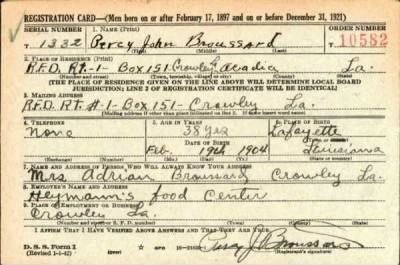 REGISTRATION CARD—(Men born on or after February 17, 1897 and on or before December 31, 1921)
SERIAL NUMBER 1. NAME (Print) ORDER NUMBER
T 1332 Percy John Broussard 10582
(First) (Middle) (Last)
2. PLACE OF RESIDENCE (Print)
R.F.D. Rt.-1- Box 151- Crowley Acadia La.
(Number and street) (Town, township, village, or city) (County) (State)
[THE PLACE OF RESIDENCE GIVEN ON THE LINE ABOVE WILL DETERMINE LOCAL BOARD
JURISDICTION; LINE 2 OF REGISTRATION CERTIFICATE WILL BE IDENTICAL]
3. MAILING ADDRESS
R.F.D. Rt. #-1- Box 151- Crowley La.
(Mailing address if other than place indicated on line 2. If same insert word same)
4. TELEPHONE 5. AGE IN YEARS 6. PLACE OF BIRTH
None 38 yrs Lafayette
DATE OF BIRTH (Town or county)
Feb. 19th 1904 Louisiana
(Exchange) (Number) (Mo.) (Day) (Yr.) (State or country)
7. NAME AND ADDRESS OF PERSON WHO WILL ALWAYS KNOW YOUR ADDRESS
Mrs Adrian Broussard Crowley La.
8. EMPLOYER'S NAME AND ADDRESS
Heymann's Food Center
9. PLACE OF EMPLOYMENT OR BUSINESS
Crowley La.
(Number and street or R. F. D. number) (Town) (County) (State)
I AFFIRM THAT I HAVE VERIFIED ABOVE ANSWERS AND THAT THEY ARE TRUE.
D. S. S. Form 1
(Revised 1-1-42) (over) Percy J. Broussard